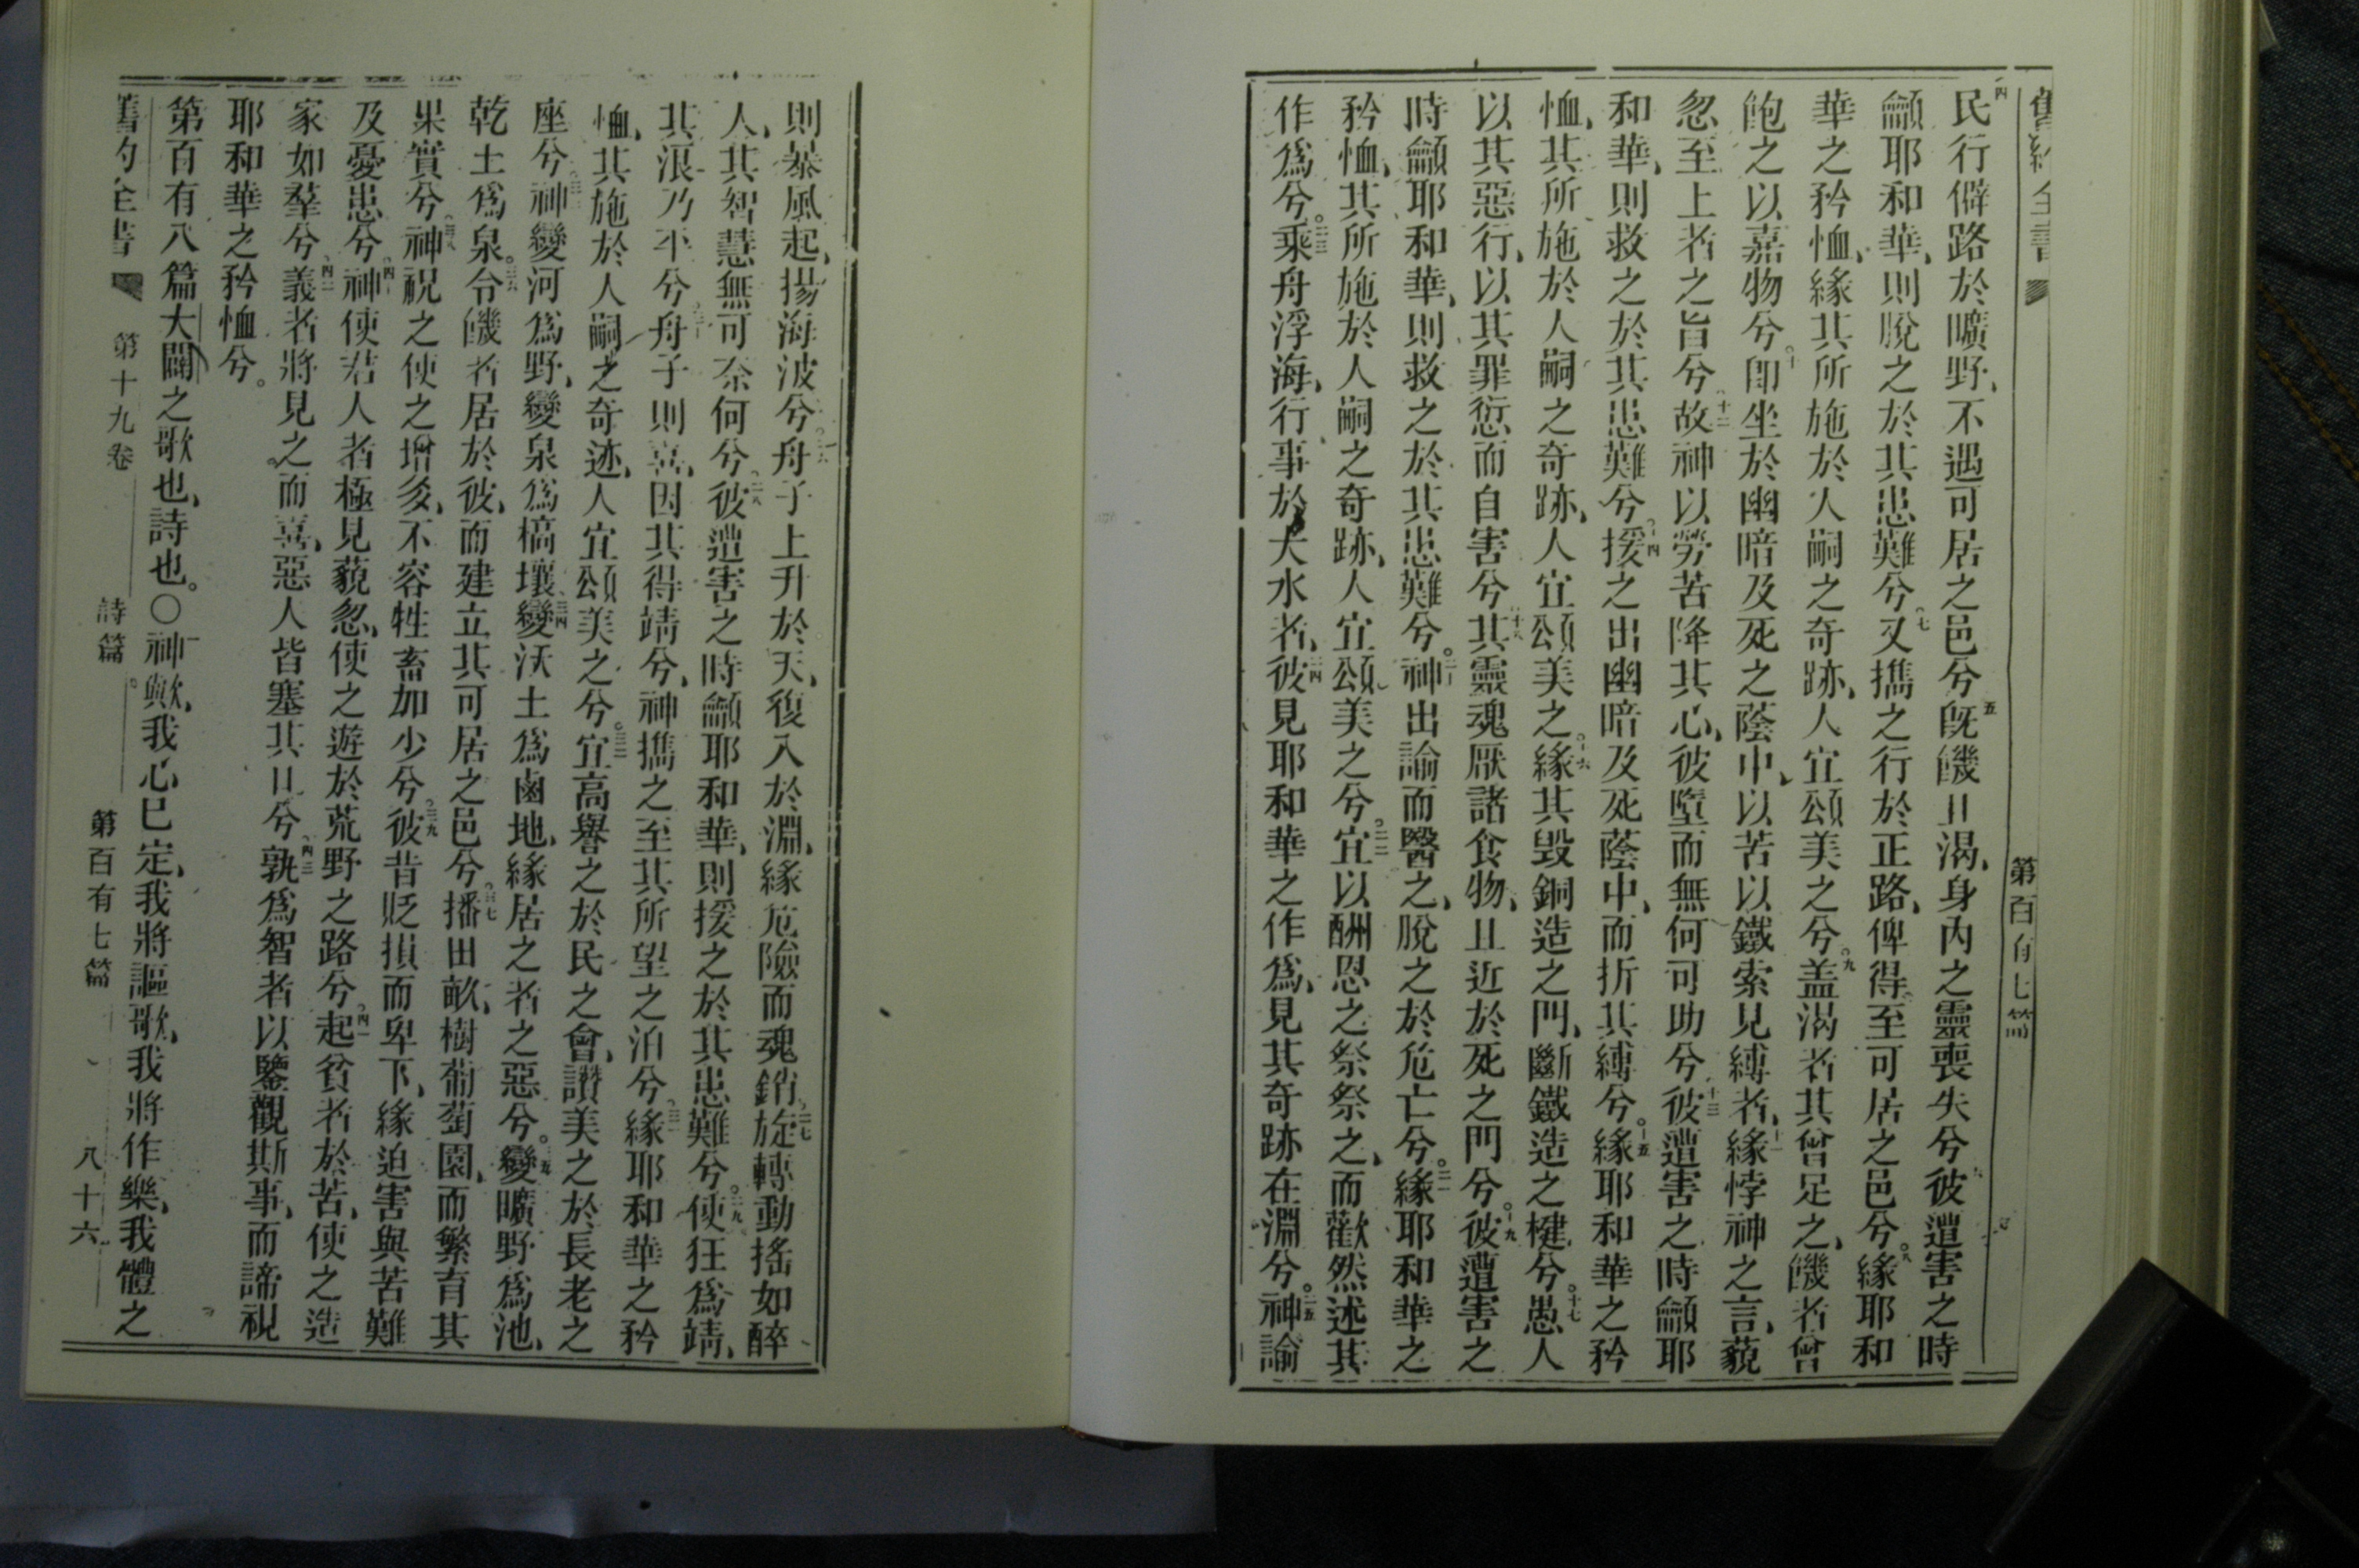 舊約全書 第百有七篇
四民行僻路於曠野、不遇可居之邑兮五旣饑且渴、身內之靈喪失兮六彼遭害之時
籲耶和華、則脫之於其患難兮。七又携之行於正路、俾得至可居之邑兮。八緣耶和
華之矜恤、緣其所施於人嗣之奇跡、人宜頌美之兮。九盖渴者其曾足之、饑者曾
飽之以嘉物兮。十卽坐於幽暗及死之蔭中、以苦以鐵索見縛者、十一緣悖神之言、藐
忽至上者之旨兮。十二故神以勞苦降其心、彼墮而無何可助兮。十三彼遭害之時籲耶
和華、則救之於其患難兮。十四援之出幽暗及死蔭中、而折其縛兮。十五緣耶和華之矜
恤、其所施於人嗣之奇跡、人宜頌美之。十六緣其毀銅造之門、斷鐵造之楗兮。十七愚人
以其惡行、以其罪愆而自害兮。十八其靈魂厭諸食物、且近於死之門兮。十九彼遭害之
時籲耶和華、則救之於其患難兮。二十神出諭而醫之、脫之於危亡兮。二一緣耶和華之
矜恤、其所施於人嗣之奇跡、人宜頌美之兮。二二宜以酬恩之祭祭之、而歡然述其
作爲兮。二三乘舟浮海、行事於大水者、二四彼見耶和華之作爲、見其奇跡在淵兮。二五神諭
則暴風起、揚海波兮。二六舟子上升於天、復入於淵、緣危險而魂銷二七旋轉動搖如醉
人、其智慧無可奈何兮。二八彼遭害之時籲耶和華、則援之於其患難兮。二九使狂爲靖、
其浪乃平兮。三十舟子則喜、因其得靖兮、神携之至其所望之泊兮。三一緣耶和華之矜
恤、其施於人嗣之奇迹、人宜頌美之兮。三二宜高譽之於民之會、讚美之於長老之
座兮。三三神變河爲野、變泉爲槁壤、三四變沃土爲鹵地、緣居之者之惡兮。三五變曠野爲池、
乾土爲泉。三六令饑者居於彼、而建立其可居之邑兮。三七播田畝、樹葡萄園、而繁育其
果實兮。三八神祝之使之增多、不容牲畜加少兮。三九彼昔貶損而卑下、緣迫害與苦難
及憂患兮。四十神使君人者極見藐忽、使之遊於荒野之路兮。四一起貧者於苦、使之造
家如羣兮。四二義者將見之而喜、惡人皆塞其口兮。四三孰爲智者以鑒觀斯事、而諦視
耶和華之矜恤兮。
第百有八篇大闢之歌也、詩也。〇一神歟、我心已定、我將謳歌、我將作樂、我體之
舊約全書 第十九卷 詩篇 第百有七篇 八十六